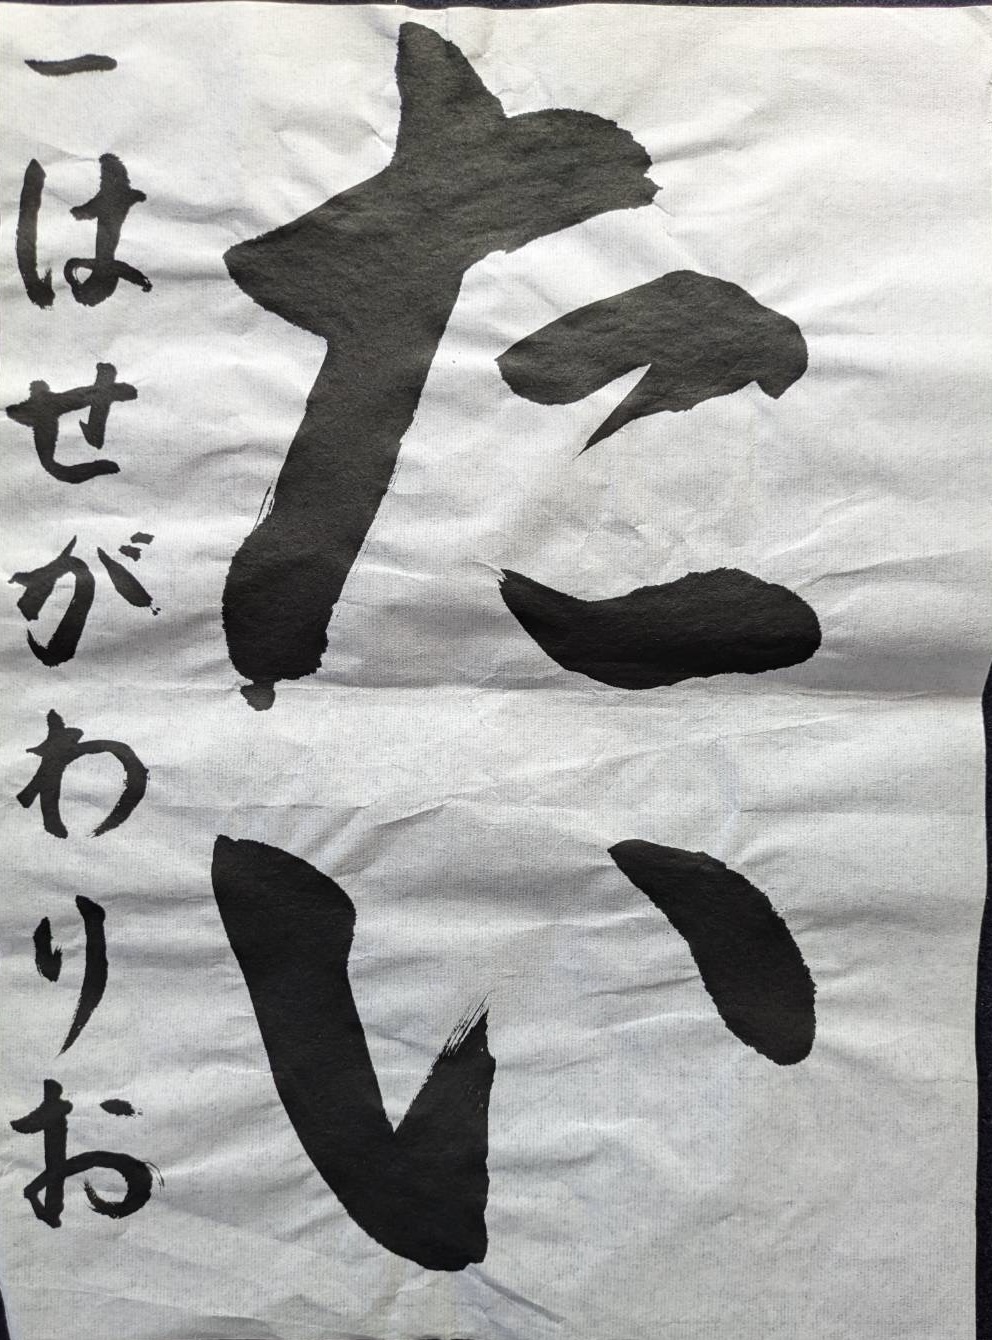 たい
一はせがわりお